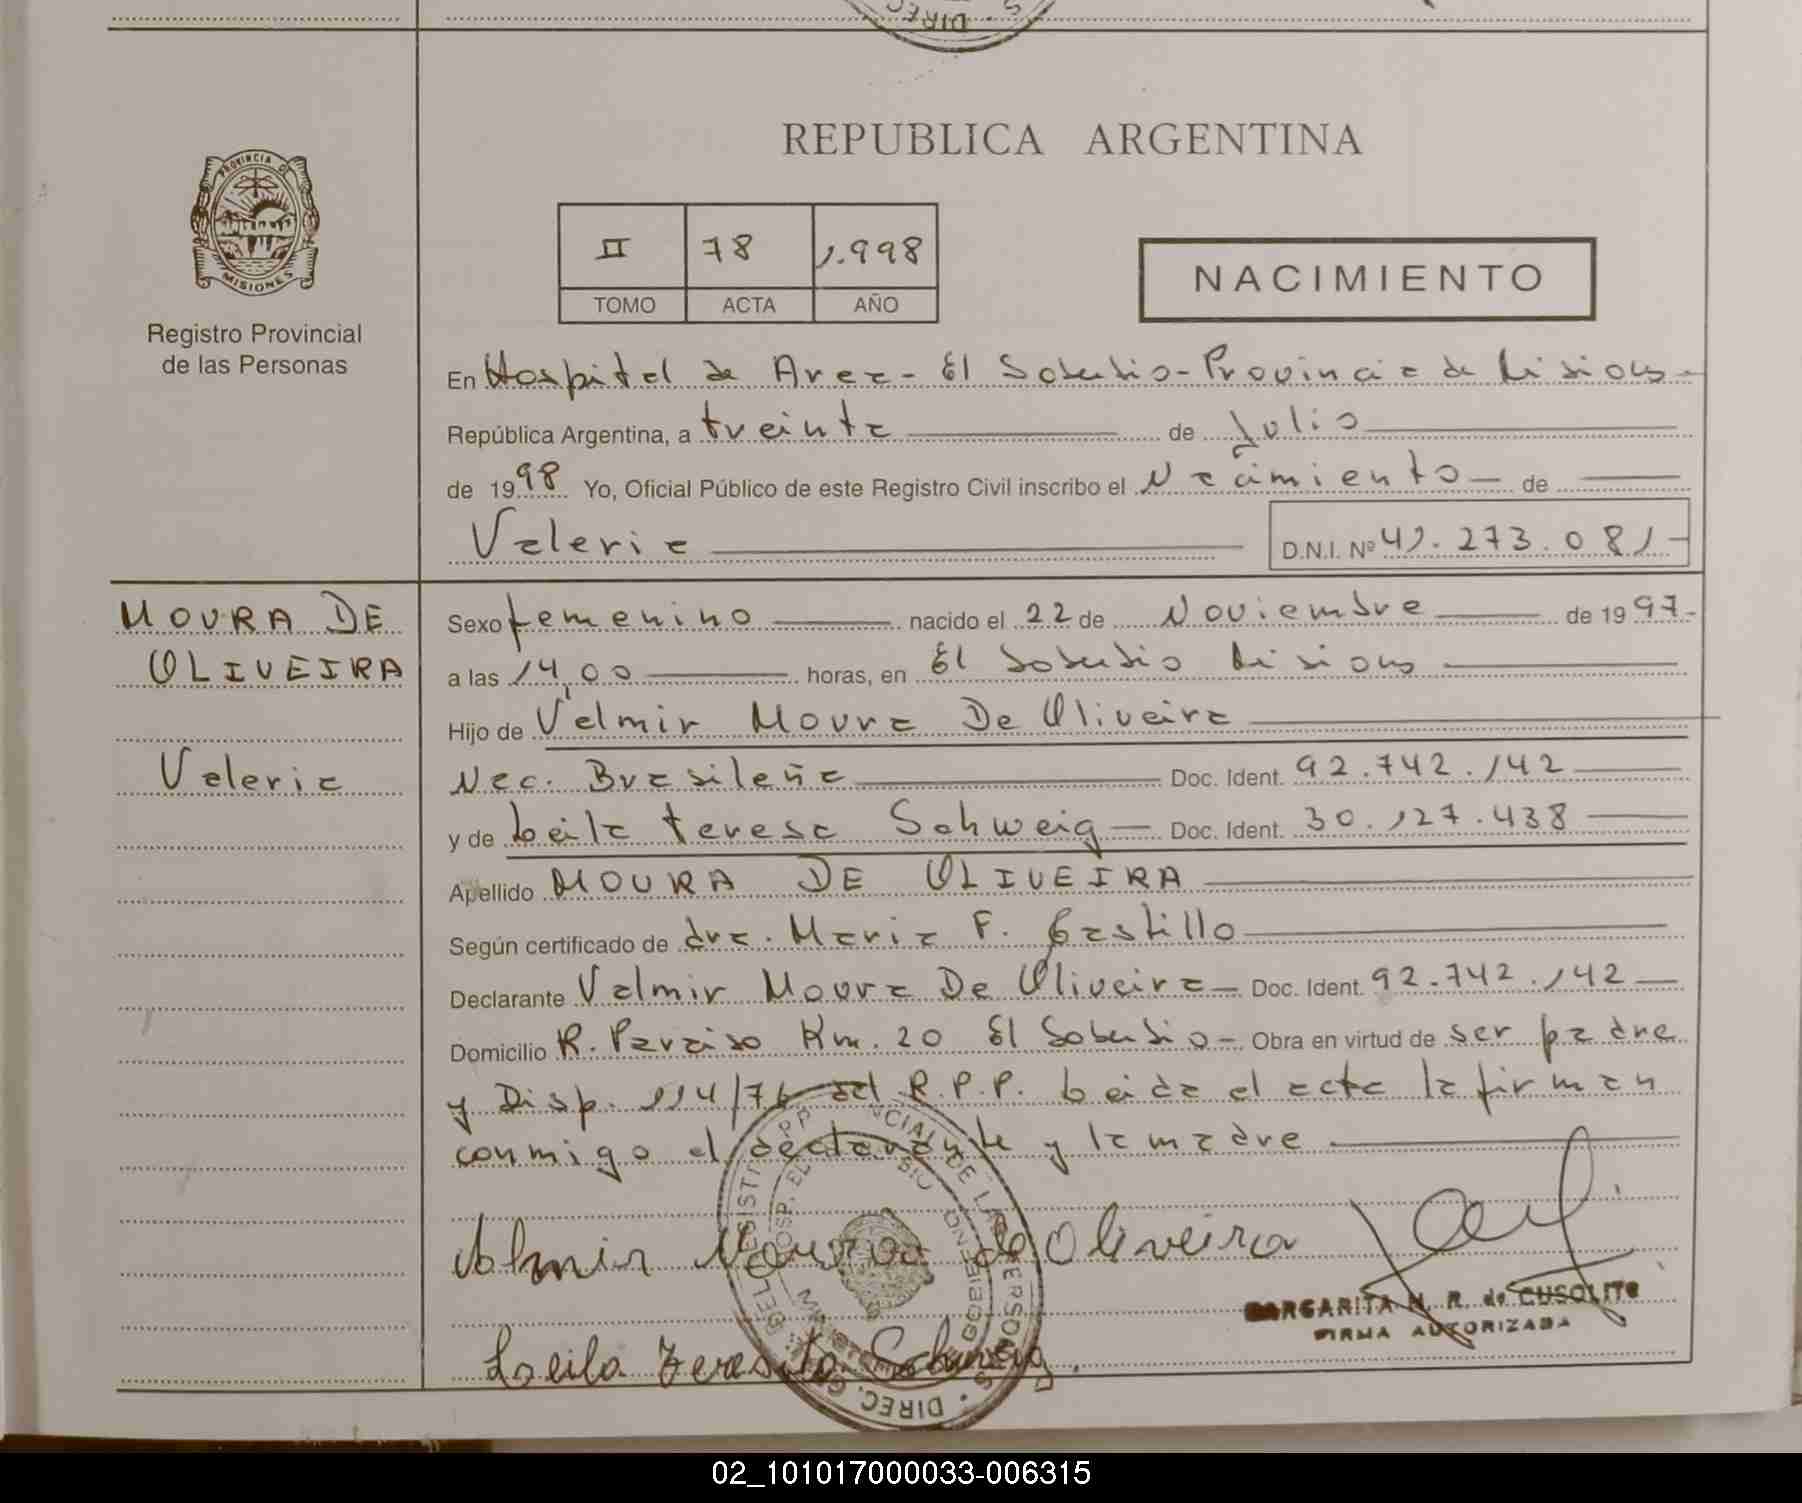 DIREC
S
REPUBLICA ARGENTINA
PROVINCIA DE
MISIONES
Registro Provincial
de las Personas
II 78 1.998
TOMO ACTA AÑO
NACIMIENTO
En Hospital de Area - El Soberbio - Provincia de Misiones -
República Argentina, a treinta de Julio
de 1998 Yo, Oficial Público de este Registro Civil inscribo el Nacimiento - de
Valeria D.N.I. Nº 41.273.081 -
MOURA DE
OLIVEIRA
Valeria
Sexo femenino nacido el 22 de Noviembre de 1997 -
a las 14,00 horas, en El Soberbio Misiones
Hijo de Valmir Moura De Oliveira
Nac. Brasileña Doc. Ident. 92.742.142
y de Leila teresa Schweig - Doc. Ident. 30.127.438
Apellido MOURA DE OLIVEIRA
Según certificado de dra. Maria F. Castillo
Declarante Valmir Moura De Oliveira - Doc. Ident. 92.742.142
Domicilio R. Paraiso Km. 20 El Soberbio - Obra en virtud de ser padre
y Disp. 114/76 del R.P.P. Leida el acta la firman
conmigo el declarante y la madre
Valmir Moura de Oliveira
Leila Teresita Schweig.
MARGARITA N. R. de CUSOLITO
FIRMA AUTORIZADA
02_101017000033-006315